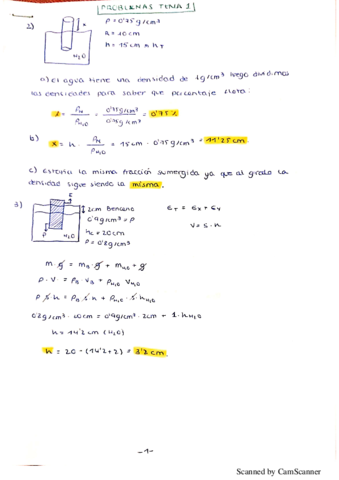 PROBLEMAS TEMA 1
2)
ρ = 0'75 g/cm³
R = 10cm
h = 15cm
H₂O
a) el agua tiene una densidad de 1g/cm³ luego dividimos
las densidades para saber que porcentaje flota:
= 0'75 g/cm³ = 0'75 %
b) x = h · = 15cm · 0'75 g/cm³ = 11'25 cm
c) estaría la misma fracción sumergida ya que al
densidad sigue siendo la misma.
3)
E
2cm Benceno
0'9g/cm³ = ρ
hc = 20cm
ρ = 0'8g/cm³
H₂O
P
V = S · h
m · g = m_B · g + m_H₂O · g
ρ · V = ρ_B · V_B + ρ_H₂O V_H₂O
ρ S h = ρ_B · S h + ρ_H₂O · S · h_H₂O
0'8g/cm³ · 20cm = 0'9g/cm³ · 2cm + 1 · h_H₂O
h = 14'2 cm (H₂O)
h = 20 - (14'2+2) = 3'8 cm
-1-
Scanned by CamScanner